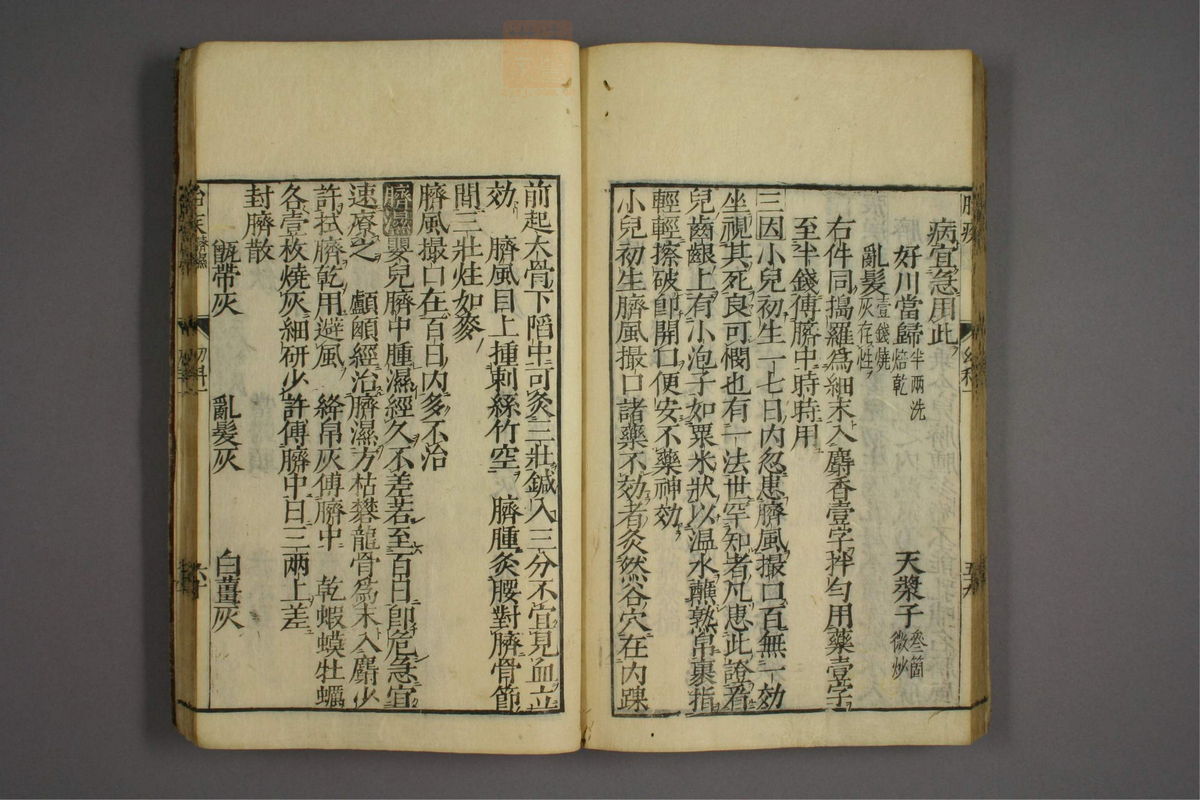 病宜急用此
好川當歸半兩洗焙乾 天漿子叁箇微炒
亂髮壹錢燒灰存性
右件同搗羅爲細末入麝香壹字拌勻用藥壹字
至半錢傅臍中時時用
三因小兒初生一七日內忽患臍風撮口百無一効
坐視其死良可憫也有一法世罕知者凡患此證看
兒齒齦上有小泡子如粟米狀以温水蘸熟帛裹指
輕輕擦破卽開口便安不藥神効
小兒初生臍風撮口諸藥不効者灸然谷穴在內踝
前起大骨下陷中可灸三壯鍼入三分不宜見血立
効 臍風目上揷刺絲竹空 臍腫灸腰對臍骨節
間三壯炷如麥
臍風撮口在百日內多不治
臍濕嬰兒臍中腫濕經久不差若至百日卽危急宜
速療之 顱顖經治臍濕方枯礬龍骨爲末入麝少
許拭臍乾用避風 絳帛灰傅臍中 乾蝦蟆牡蠣
各壹枚燒灰細研少許傅臍中日三兩上差
封臍散
甑帶灰 亂髮灰 白薑灰